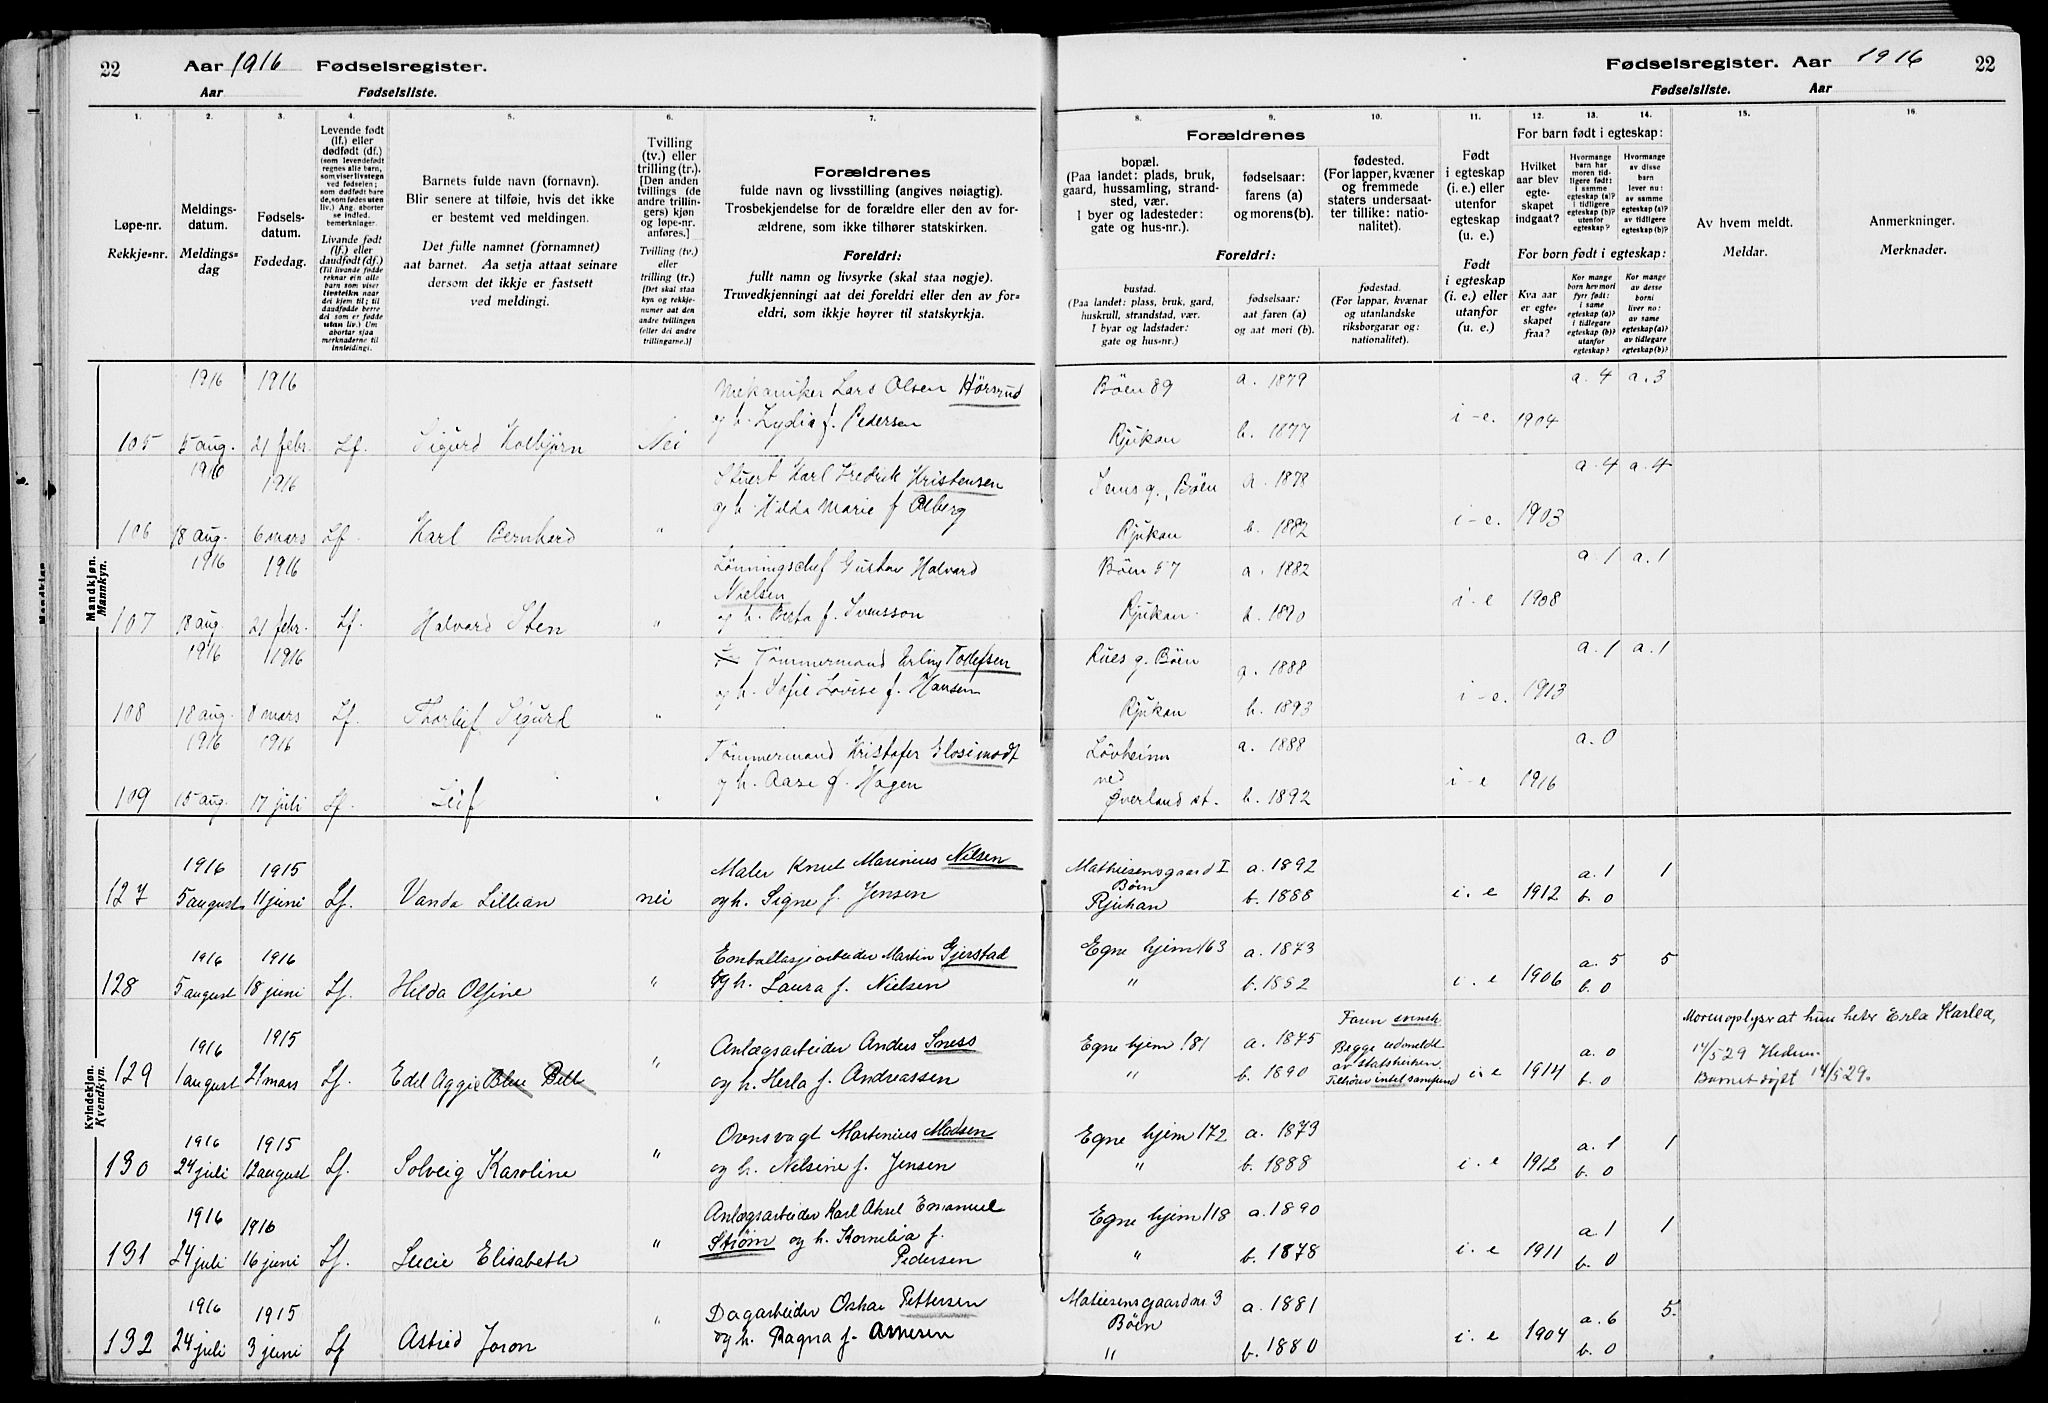 22 Aar 1916 Fødselsregister.
Aar Fødselsliste.
Fødselsregister. Aar 1916 22
Fødselsliste. Aar
1. 2. 3. 4. 5. 6. 7. 8. 9. 10. 11. 12. 13. 14. 15. 16.
Løpe-nr.
Rekkje-nr.
Meldings-
datum.
Meldings-
dag
Fødsels-
datum.
Fødedag.
Levende født
(lf.) eller
dødfødt (df.)
(som levendefødt
regnes alle barn,
som viser livstegn
ved fødselen;
som dødfødt bare
de, som fødes uten
liv.) Ang. aborter
se indled.
bemerkninger.
Livande født
(lf.) eller
daudfødt (df.)
(Til livande fødde
reknar ein alle
barn som viser
livsteikn naar
dei kjem til; til
daudfødde berre
dei som er fødde
utan liv.) Um
abortar sjaa
merknaderne til
innleidingi.
Barnets fulde navn (fornavn).
Blir senere at tilføie, hvis det ikke
er bestemt ved meldingen.
Det fulle namnet (fornamnet)
aat barnet. Aa setja attaat seinare
dersom det ikkje er fastsett
ved meldingi.
Tvilling
(tv.) eller
trilling (tr.).
[Den anden
tvillings (de
andre trillin-
gers) kjøn
og løpe-nr.
anføres.]
Tvilling (tv.)
eller
trilling (tr.)
[Det skal staa
kyn og rekkje-
numer aat den
andre tvillingen
(eller dei andre
trillingarne.)]
Forældrenes
fulde navn og livsstilling (angives nøiagtig).
Trosbekjendelse for de forældre eller den av for-
ældrene, som ikke tilhører statskirken.
Foreldri:
fullt namn og livsyrke (skal staa nøgje).
Truvedkjenningi aat dei foreldri eller den av for-
eldri, som ikkje høyrer til statskyrkja.
Forældrenes
bopæl.
(Paa landet: plads, bruk,
gaard, hussamling, strand-
sted, vær.
I byer og ladesteder:
gate og hus-nr.).
fødselsaar:
farens (a)
og morens (b).
fødested.
(For lapper, kvæner
og fremmede
staters undersaat-
ter tillike: natio-
nalitet).
Foreldri:
bustad.
(Paa landet: plass, bruk, gard,
huskrull, strandstad, vær.
I byar og ladstader:
gate og hus-nr.)
fødselsaar:
aat faren (a)
og aat mori (b).
fødestad.
(For lappar, kvænar
og utanlandske
riksborgarar og:
nationalitet).
Født
i egteskap
(i. e.) eller
utenfor
egteskap
(u. e.)
Født
i egteskap
(i. e.) eller
utanfor
(u. e.)
For barn født i egteskap:
Hvilket
aar blev
egte-
skapet
indgaat?
Hvormange
barn har
moren tid-
ligere født:
i samme
egteskap (a)?
i tidligere
egteskap (b)?
utenfor
egteskap?
Hvormange
av disse
barn
lever nu:
av samme
egteskap (a)?
av tidligere
egteskap (b)?
For born født i egteskap:
Kva aar
er egte-
skapet
fraa?
Kor mange
born hev mori
fyrr født:
i same
egteskap (a)?
i tidlegare
egteskap (b)?
utanfor
egteskap?
Kor mange
av desse
borni
liver no:
av same
egteskap (a)?
av tidlegare
egteskap (b)?
Av hvem meldt.
Meldar.
Anmerkninger.
Merknader.
Mandkjøn.
Mannkyn.
1916 1916 Mekaniker Lars Olsen Hørsrud Bøen 89 a. 1879 a. 4 a. 3
og h. Lydia f. Pedersen i-e. 1904
105 5 aug. 21 febr. Lf. Sigurd Kolbjørn Nei Rjukan b. 1877
1916 1916 Stuert Karl Fredrik Kristensen Sems g., Bøen a. 1878 a. 4 a. 4
og h. Hilda Marie f. Ålberg i-e. 1903
106 18 aug. 6 mars Lf. Karl Bernhard " Rjukan b. 1882
1916 1916 Lønningschef Gustav Halvard Bøen 57 a. 1882 a. 1 a. 1
Nielsen i-e 1908
107 18 aug. 21 febr. Lf. Halvard Sten " og h. Berta f. Svensson Rjukan b. 1890
1916 1916 Tømmermand Erling Tollefsen Rues g. Bøen a. 1888 a. 1 a. 1
og h. Sofie Lovise f. Hansen i-e. 1913
108 18 aug. 8 mars Lf. Thorleif Sigurd " Rjukan b. 1893
1916 1916 Tømmermand Kristofer Flosimodt Løvheim a. 1888 a. 0
og h. Aase f. Hagen ned i-e 1916
109 15 aug. 17 juli Lf. Leif " Øverland st. b. 1892
Kvindekjøn.
Kvendkyn.
1916 1915 Maler Knut Marinius Nilsen Mathiesensgaard I a. 1892 a. 1 1
Bøen
127 5 august 11 juni Lf. Vanda Lillian nei og h. Signe f. Jensen Rjukan b. 1888 i. e 1912 b. 0
1916 1916 Emballasjearbeider Martin Gjerstad Egne hjem 163 a. 1873 a. 5 5
128 5 august 18 juni Lf. Hilda Olfine " og h. Laura f. Nielsen " b. 1882 i. e 1906 b. 0
1916 1915 Anlægsarbeider Anders Sness Egne hjem 181 a. 1875 Faren svensk. Moren oplyser at hun heter Erla Karlea,
Begge udmeldt a. 0 14/5 29
av statskirken.
129 1 august 21 mars Lf. Edel Aggie Blue Bell " og h. Herla f. Andreassen " b. 1890 Tilhører intet samfund i. e 1914 b. 0 Barnet døpt 14/5 29.
1916 1915 Ovnsvagt Martinius Madsen Egne hjem 172 a. 1873 a. 1 1
130 24 juli 12 august Lf. Solveig Karoline " og h. Nilsine f. Jensen " b. 1888 i. e 1912 b. 0
1916 1916 Anlægsarbeider Karl Aksel Emanuel Egne hjem 118 a. 1890 a. 1 1
Strøm og h. Kornelia f.
131 24 juli 16 juni Lf. Lucie Elisabeth " Pedersen " b. 1878 i. e 1911 b. 0
1916 1915 Dagarbeider Oskar Pettersen Matiesensgaard nr. 3 a. 1881 a. 6 5.
Bøen
132 24 juli 3 juni Lf Astrid Joron " og h. Ragna f. Arnesen " b. 1880 i. e 1904 b. 0